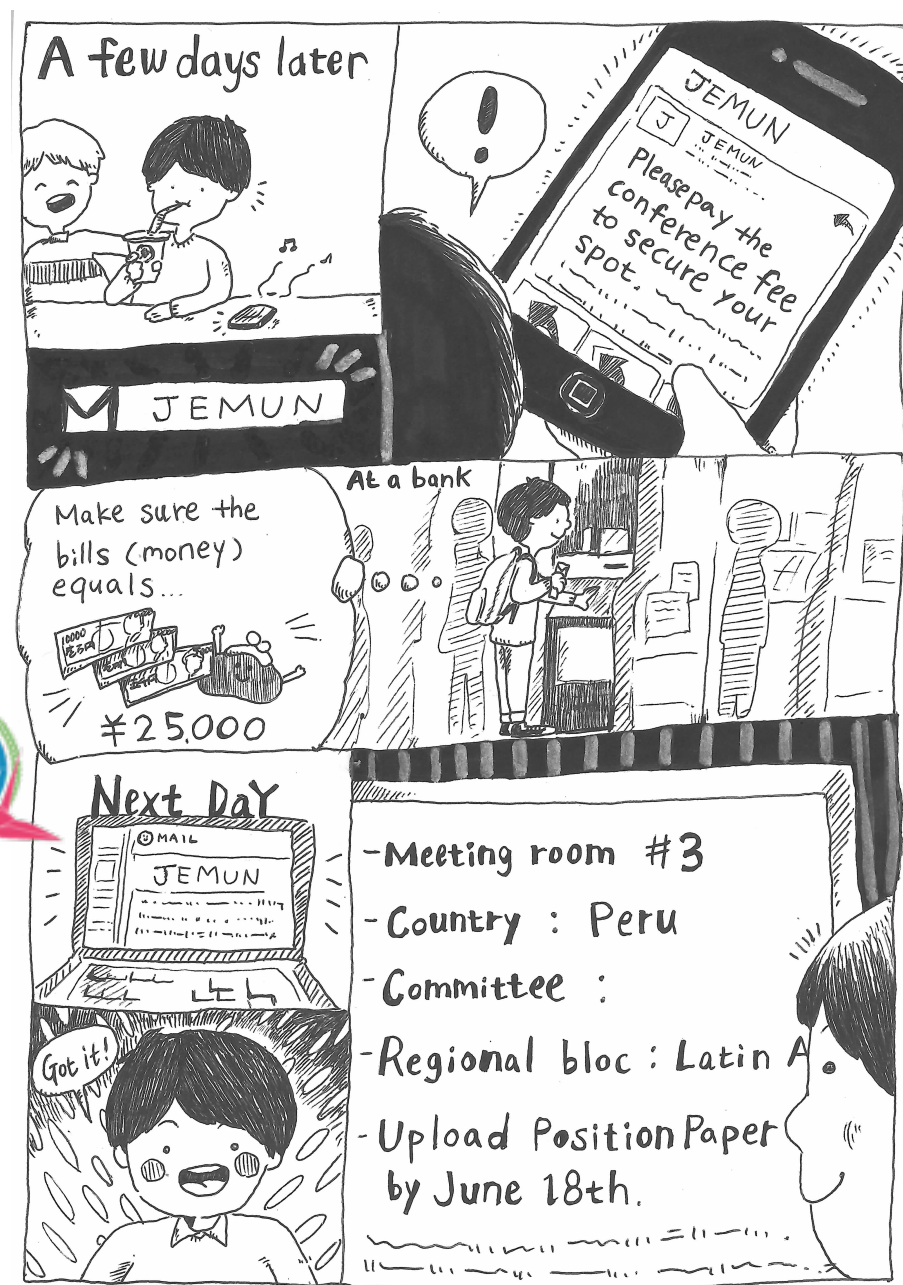 A few days later
JEMUN
!
JEMUN
J
JEMUN
Please pay the
conference fee
to secure your
spot.
At a bank
Make sure the
bills (money)
equals...
10000
¥25,000
Next Day
MAIL
JEMUN
Got it!
-Meeting room #3
-Country : Peru
-Committee :
-Regional bloc : Latin A
-Upload Position Paper
by June 18th.